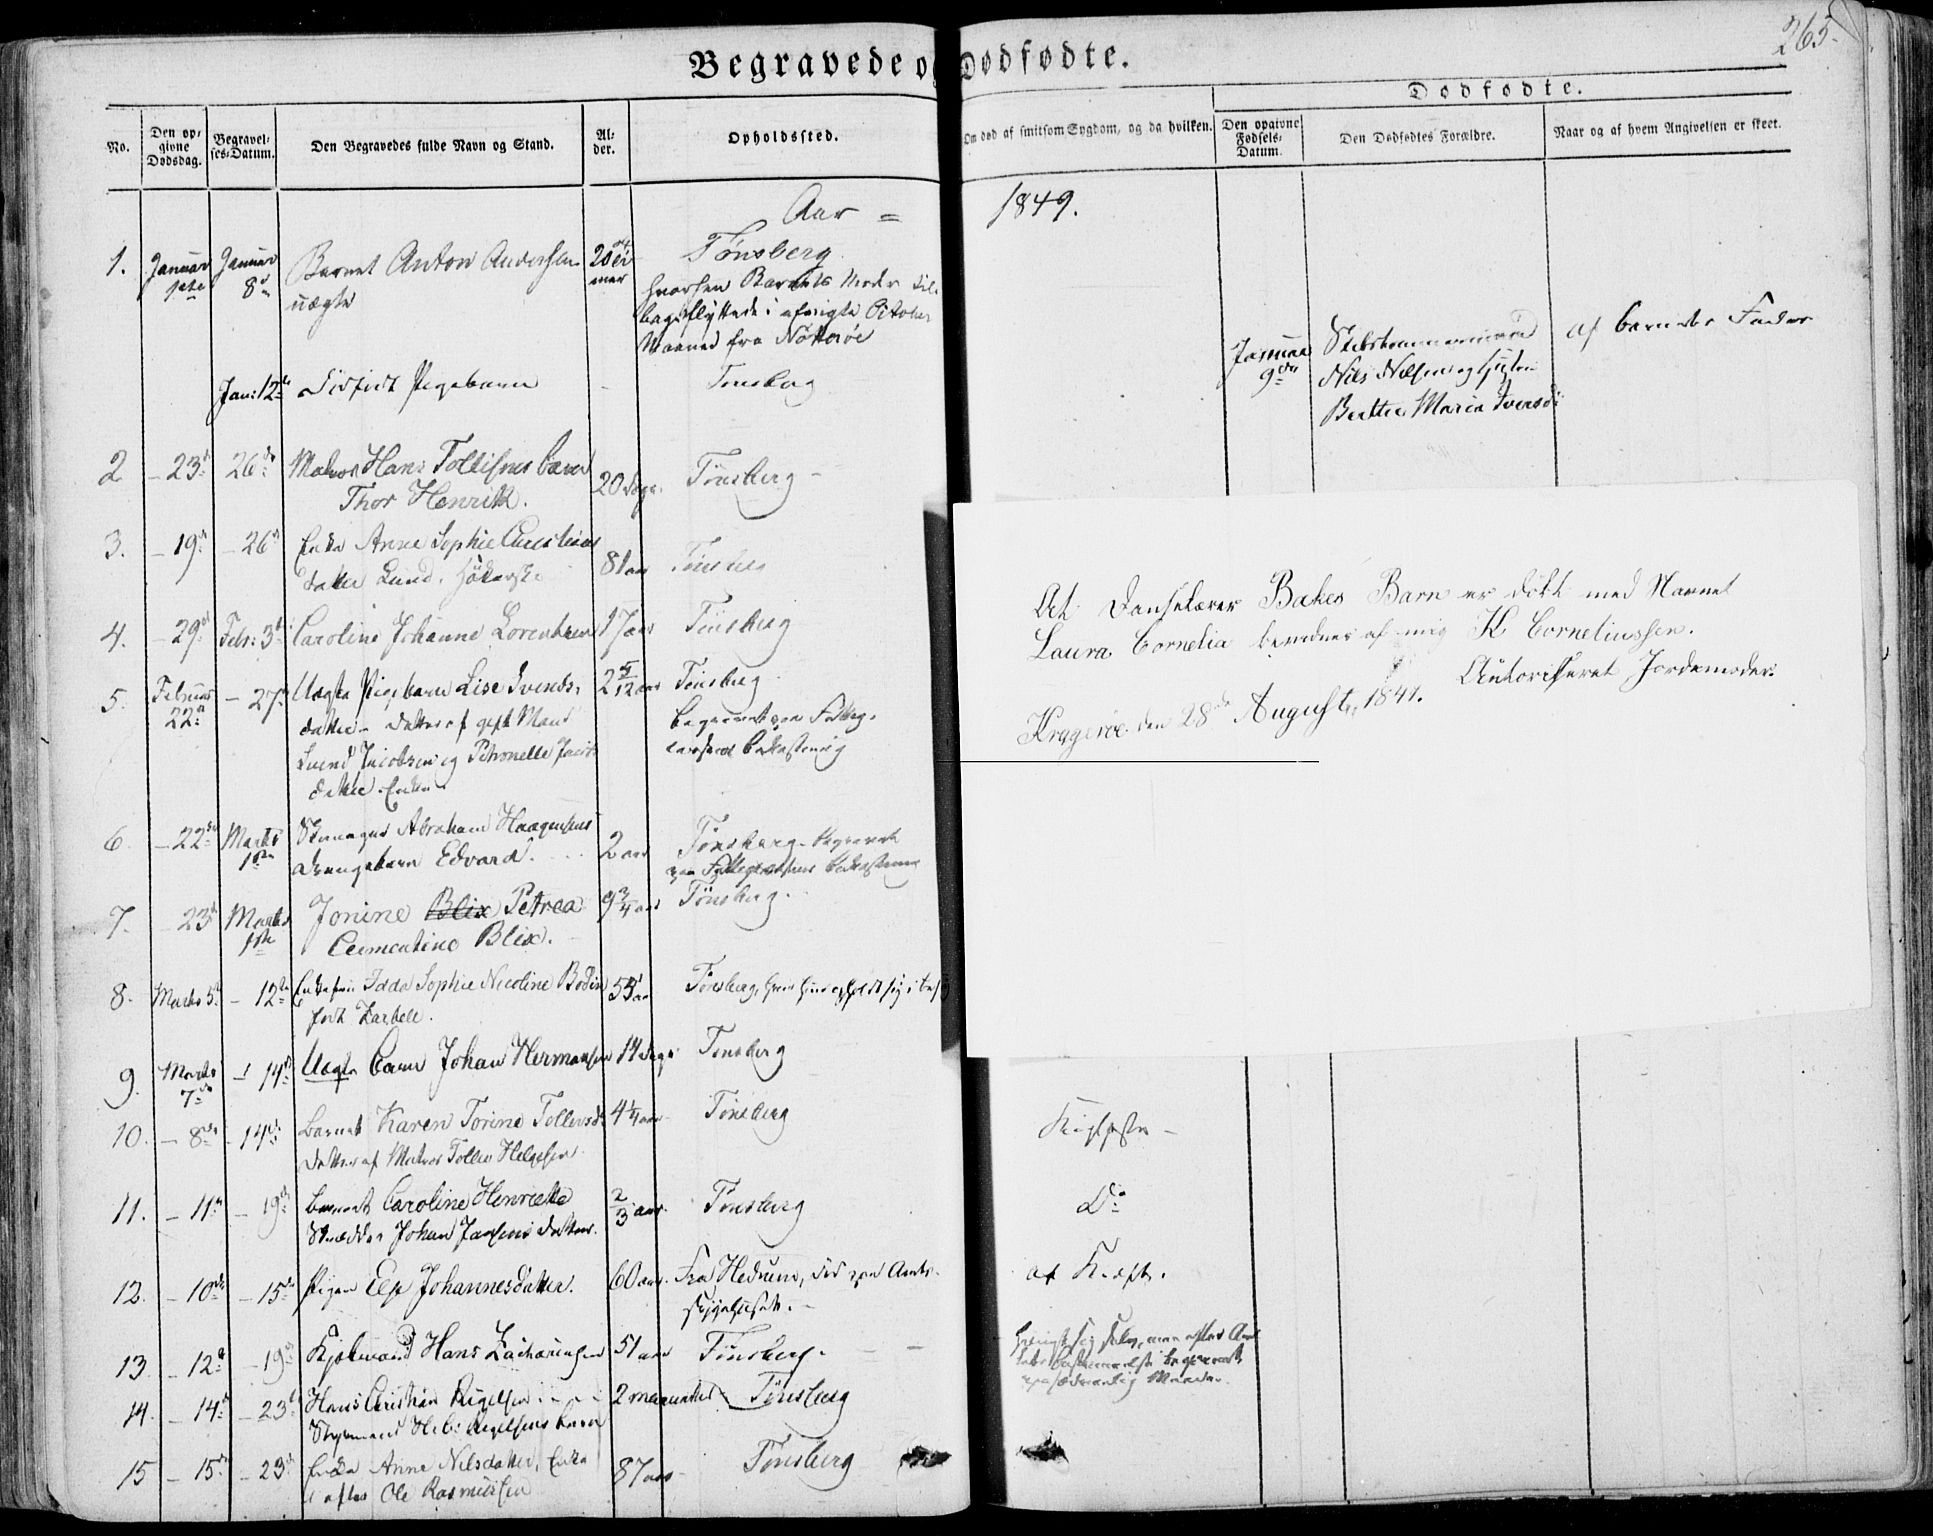 265.
Begravede og Dødfødte.
No.
Den opgivne Dødsdag.
Begravelses-Datum.
Den Begravedes fulde Navn og Stand.
Alder.
Opholdssted.
Om død af smitsom Sygdom, og da hvilken.
Dødfødte.
Den opgivne Fødsels-Datum.
Den Dødfødtes Forældre.
Naar og af hvem Angivelsen er skeet.
Aar = 1849.
1. Januar 1ste Januar 8de Barnet Anton Andersen Tønsberg
uægte
hvorhen Barnets Moder
October
Maaned fra Nøtterøe
Jan: 12te Pigebarn - Tønsberg
Januar 9de
Nils Nilsen og Hustru
Berthe Maria Iversd:
af barnets Fader
2 - 23de 26de Matros Hans Tollefsens barn 20 Dage Tønsberg -
Thor Henrik.
3. - 19de - 26de Enke Anne Sophie Christians 81 aar Tønsberg
datter Lund.
4. - 29de Febr: 3de Caroline Johanne Lorentzen 17 aar Tønsberg
5. Februar 22de - 27de Uægte Pigebarn Lise Svends- 2 5/12 aar Tønsberg
datter - datter af gift Mand
Svend Jacobsen og Petronelle Jacobs
datter. Enke.
6. - 22de Marts 1ste Abraham Haagensens 2 aar Tønsberg. begravet
drengebarn Edvard.
paa Fattigvæsenets Bekostning
7. - 23de Marts 1ste Jonine Blix Petrea 9 3/4 aar Tønsberg.
Clementine Blix.
8. Marts 5te - 12te Enkefrue Idda Sophie Nicoline Bødin Tønsberg, hvor hun opholdt sig i
født
9. Marts 7de - 14de Uægte Barn Johan Hermansen 14 Dage Tønsberg
10. - 8de - 14de Barnet Karen Torine Tollevsd: 4 1/4 aar Tønsberg
datter af Matros Tollev Helgesen
Kighoste -
11. - 11te - 19de Barnet Caroline Henriette 2/3 aar. Tønsberg
Skrædder Johan Jansens datter.
Do
12. - 10de - 15de Pigen Else Johannesdatter. 60 aar. Fra Hedrum, død paa Amts-
sygehuset. -
af Kræft.
13. - 12te - 19de Hans Zachariasen 51 aar Tønsberg. - -
hængt sig selv, men efter
begravet
paa sædvanlig Maade.
14. - 14de - 23de Hans Christian 2 maaneder Tønsberg
Styrmand barn
15 - 15de - 23de Enke Anne Nilsdatter, Enke 87 aar Tønsberg
efter Ole Rasmussen
At Danselærer Bakes Barn er døbt med Navnet
Laura Cornelia bevidnes af mig K Corneliussen.
Autoriseret Jordemoder.
Kragerøe den 28de August 1841.